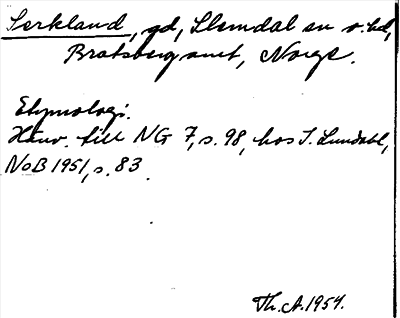 Serkland, gd, Slemdal sn o. hd,
Bratsberg amt, Norge.
Etymologi.
Hänv. till NG 7, s. 98, hos I. Lundahl,
NoB 1951, s. 83
Th. A. 1954.